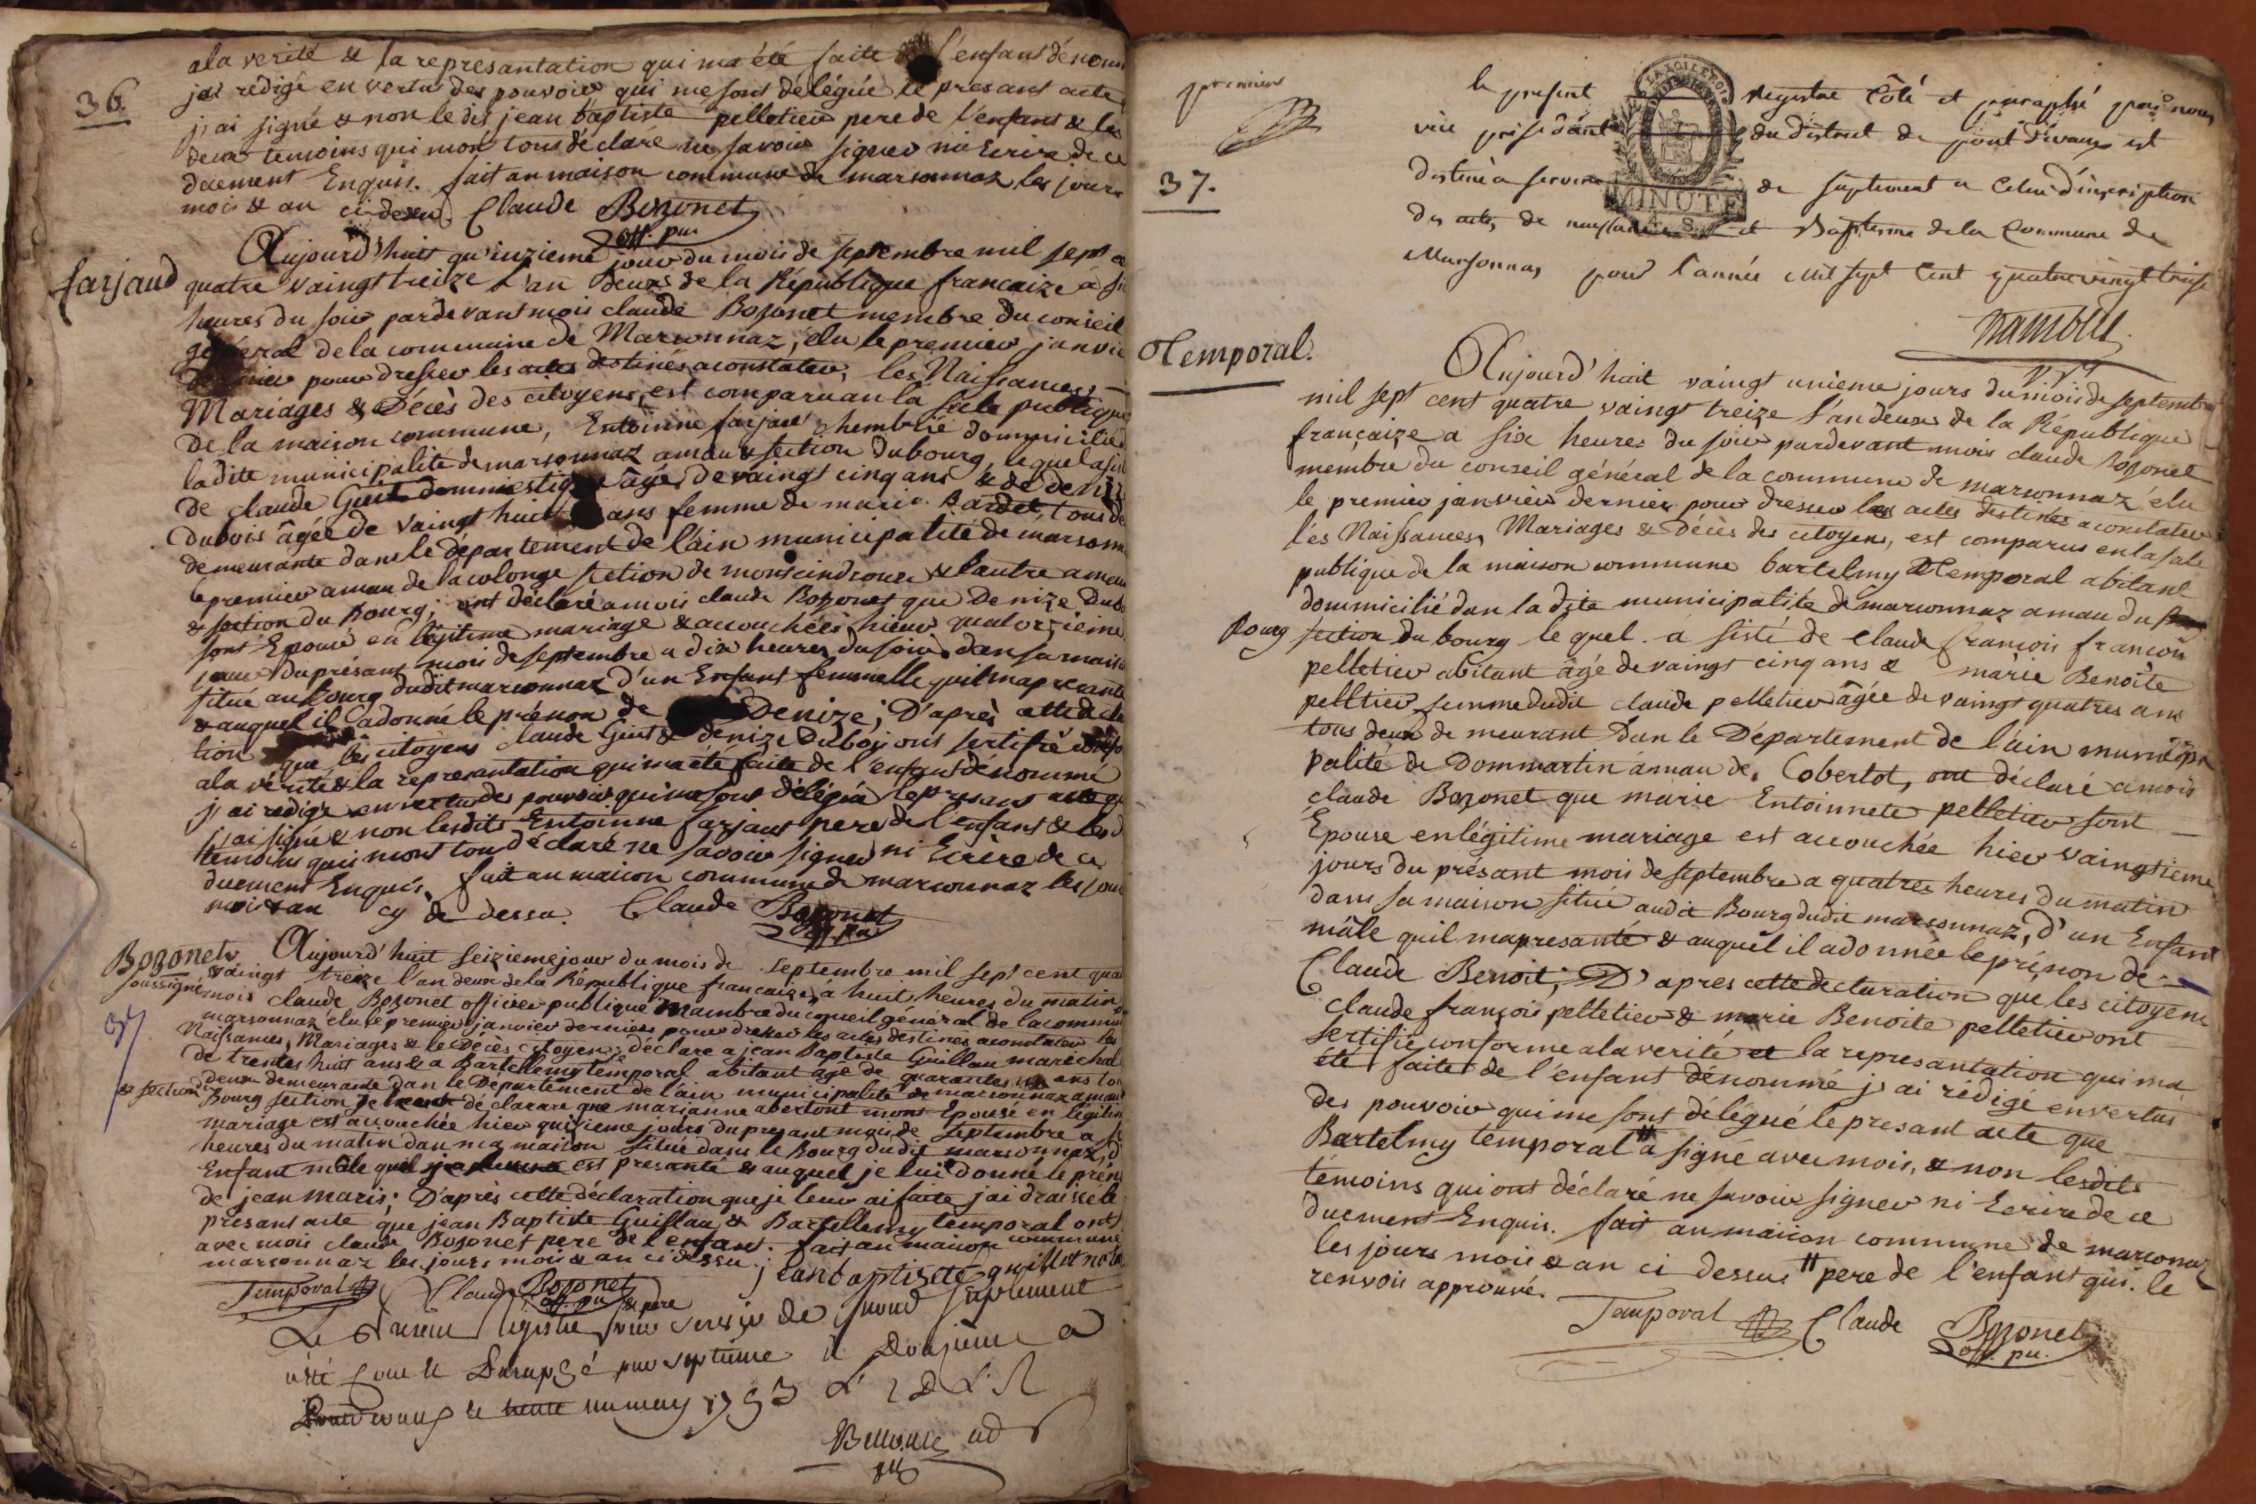 36.
ala verité & la represantation qui ma été faite l'enfant dénom
jai rédigé en vertu des pouvoirs qui me sont délégué le presant acte
j'ai signé & non ledit jean baptiste pelletier pere de l'enfant & les
deux temoins qui mont tous déclaré ne savoir signer ni Ecrire de ce
duement Enquis. fait an maison commune de marsonnaz les jours
mois & an ci dessu. Claude Bozonet
off. pu.
farjaud
Aujourd'huit quinzieme jour du mois de septembre mil sept c
quatre vaingt treize l'an deux de la République francaize a si
heures du soir pardevant mois claude Bozonet membre du conseil
général de la commune de Marsonnaz, élu le premier janvie
dernier pour dresser les actes destinés aconstater, les Naissances,
Mariages & Décès des citoyens, est comparu an la sale publique
De la maison commune, Entoinne farjaud domicilié
ladite municipalité de marsonnaz amau & section dubourg, lequel a
de claude Guit dommestique âgé de vaingt cinq ans & de deniz
Dubois âgée de vaingt huit ans femme de marie Bardet, tous de
demeurante dans le département de l'ain municipalité de marsonn
le premier amau de la colonge section de monscindroux & l'autre amau
& section du Bourg; ont déclaré a mois claude Bozonet que Denize Dubo
sont Epouse en légitime mariage & accouchées hier quatorzieme
jour du présant mois de septembre a dix heures du soir dan sa maiso
situé au bourg dudit marsonnaz d'un Enfant femmelle quil ma presante
& auquel il adonné le prénon de Denize; D'après cette decla
tion que les citoyens claude Guit & denize Dubois ont sertifié confo
ala vérité & la représantation qui ma été faite de l'enfant dénommé
j'ai rédigé en vertu des pouvoir qui me sont délégué le presant acte q
j'ai signé & non lesdits Entoinne farjaud pere de l'enfant & les d
temoins qui mont tous déclaré ne savoir signer ni Ecrire de ce
duement Enquis, fait an maison commune de marsonnaz les jour
mois & an cy de dessu. Claude Bozonet
off. pu.
Bozonet
soussigné
37
Aujourd'huit seizieme jour du mois de septembre mil sept cent qua
vaingt treize l'an deux de la République francaize, a huit heures du matin
mois claude Bozonet officier publique mambre du conseil général de la commun
marsonnaz élu le premier janvier dernier pour dresser les actes destinés aconstater les
Naissances, Mariages & le Décès citoyens; déclare a jean Baptiste Guillau maréchal
de trentes huit ans & a Bartellemy temporal abitant âgé de quarantes ans tou
& section
deux demeurante dan le Département de l'ain municipalité de marsonnaz amau
Bourg section je leur déclarare que marianne abertont mont Epouse en légitim
mariage est accouchée hier quizieme jours du presant mois de septembre a si
heures du matin dan ma maison situé dans le Bourg dudit marsonnaz, d'
Enfant mâle quil est presanté & auquel je lui donné le prén
de jean maris; D'après cette déclaration que je leur ai faite j'ai draisée le
présant acte que jean Baptiste Guillau & Bartellemy temporal ont
avec mois claude Bozonet pere de l'enfant. fait an maison commune
marsonnaz les jours mois & an ci dessu. jean baptiste guillot no
Temporal Claude Bozonet
off. pu & pere
Le present Registre pour servir de second suplement
a été cotté & Paraphé par
may 1793 L' 2 D L. R
premier
37.
le present registre Côté et paraphé par nous
vice président du district de pont devaux est
destiné a servir de suplement a celui d'inscription
des actes de naissance et Baptisme de la Commune de
Marsonnas pour l'année mil sept cent quatre vingt treise
MINUTE
Temporal.
Aujourd'huit vaingt unieme jours du mois de septembre
mil sept cent quatre vaingt treize l'an deux de la République
françaize a six heures du soir pardevant mois claude Bozonet
membre du conseil général de la commune de marsonnaz élu
le premier janvier dernier pour dresser les actes destinés aconstater
les Naissances, Mariages & Décès des citoyens, est comparus en la sale
publique de la maison commune bartelmy Temporal abitant
dommicilié dan la dite municipalité de marsonnaz amau du
Bourg section du bourg lequel a sisté de claude françois françois
pelletier abitant âgé de vaingt cinq ans & marie Benoite
pelletier femme dudit claude pelletier âgée de vaingt quatres ans
tous deux de meurant dan le Département de l'ain municipa
palité de Dommartin amau de Cobertot, ont déclaré a mois
claude Bozonet que marie Entoinnete pelletier sont
Epouse en légitime mariage est accouchée hier vaingtieme
jours du présant mois de septembre a quatres heures du matin
dans sa maison située audit Bourg dudit marsonnaz, d'un Enfant
mâle quil mapresanté & auquel il adonnée le prénon de
Claude Benoit; D'apres cette declaration que les citoyens
claude françois pelletier & marie Benoite pelletier ont
sertifié conforme ala verité et la represantation qui ma
été faite de l'enfant dénommé j'ai rédigé envertus
des pouvoir qui me sont délégué le presant acte que
Bartelmy temporal # a signé avec mois, & non lesdits
témoins qui ont déclaré ne savoir signer ni Ecrire de ce
duement Enquis. fait an maison commune de marsonaz
les jours mois & an ci dessus # pere de l'enfant qui. le
renvois approuvé.
Temporal Claude Bozonet
off. pu.